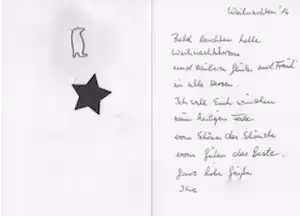 Weihnachten '16
Bald leuchten helle
Weihnachtskerzen
und Freud'
in alle Herzen.
Ich will Euch wünschen
zum heiligen Feste
vom Schönen das Schönste
vom Guten das Beste.
Ganz liebe Grüße